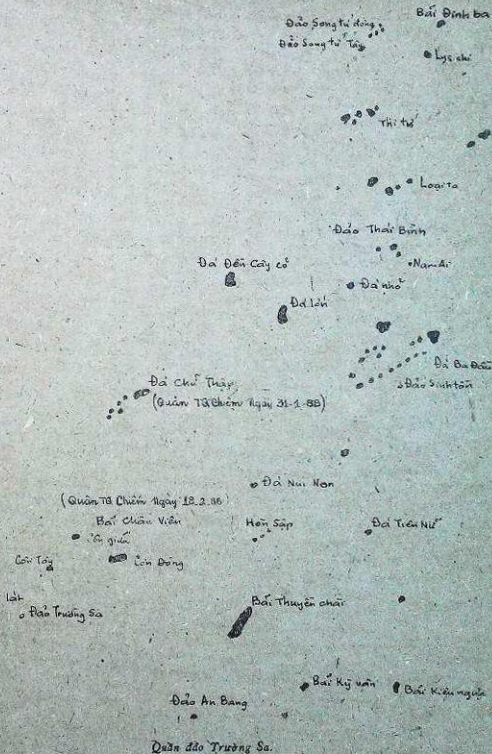 Bãi Đinh ba
Đảo Song tử đông
Đảo Song tử Tây
Lys chi
Thi tứ
Loại ta
Đảo Thái Bình
Nam Ai
Đá Đền Cây cỏ
Đá nhỏ
Đá lớn
Đá Ba Đầu
Đảo Sinh tồn
Đá Chữ Thập
(Quân TQ Chiếm Ngày 31-1-88)
Đá Núi Non
(Quân TQ Chiếm Ngày 18.2.88)
Bãi Châu Viên
Hòn Sập
Đá Tiên Nữ
Côn Tây
Côn Đông
Lát
Đảo Trường Sa
Bãi Thuyền chài
Bãi Kỳ vân
Bãi Kiệu ngựa
Đảo An Bang
Quần đảo Trường Sa.